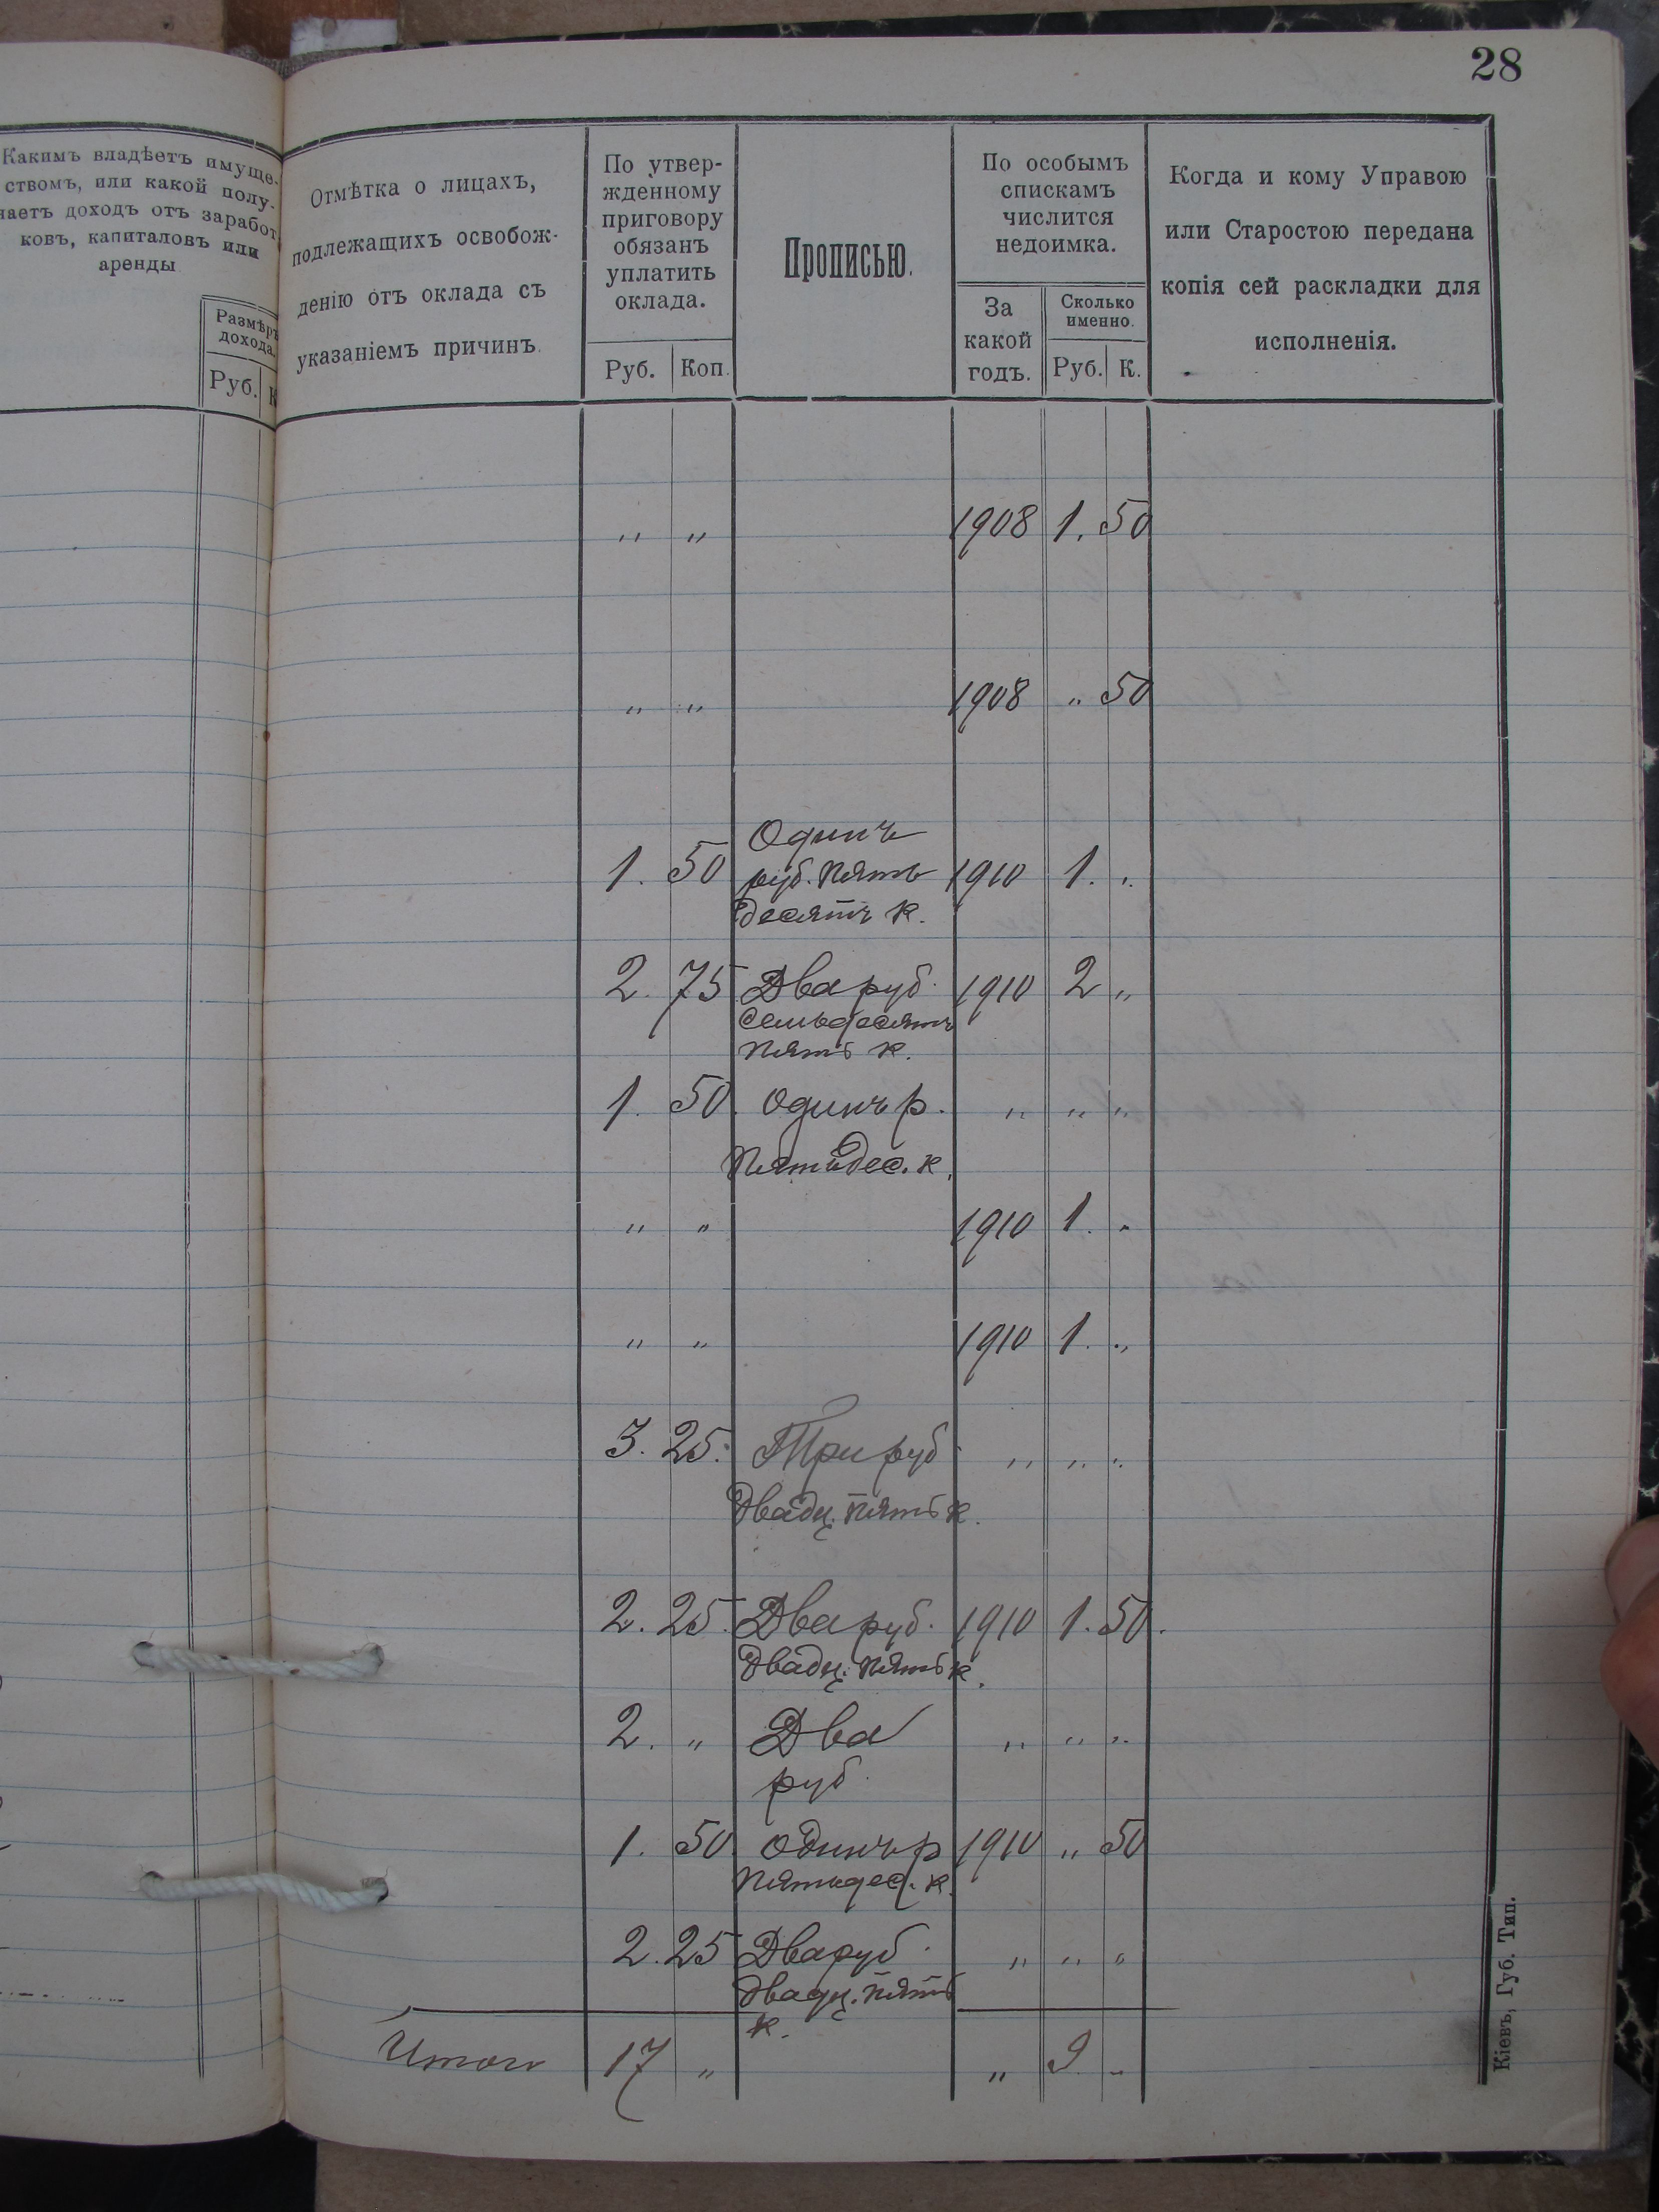 28
Какимъ владѣетъ имуще-
ствомъ, или какой полу-
чаетъ доходъ отъ заработ
ковъ, капиталовъ или
аренды
Размѣръ
дохода.
Руб. К
Отмѣтка о лицахъ,
подлежащихъ освобож-
денію отъ оклада съ
указаніемъ причинъ.
По утвер-
жденному
приговору
обязанъ
уплатить
оклада.
Руб. Коп.
Прописью.
По особымъ
спискамъ
числится
недоимка.
За
какой
годъ.
Сколько
именно.
Руб. К.
Когда и кому Управою
или Старостою передана
копія сей раскладки для
исполненія.
„ „ 1908 1. 50
„ „ 1908 „ 50
Одинъ
1. 50 руб. пять 1910 1. „
десятъ к.
2. 75 Два руб. 1910 2 „
семьдесятъ
пять к.
1. 50. Одинъ р. „ „ „
Пятьдес. к.
„ „ 1910 1. „
„ „ 1910 1. „
3. 25. Три руб. „ „ „
Двадц. пять к.
2. 25. Два руб. 1910 1. 50.
Двадц. пять к.
2. „ Два „ „ „
руб.
1. 50. Одинъ р 1910 „ 50
Пятьдес. к.
2. 25 Два руб. „ „ „
Двадц. пять
к.
Итого 17 „ „ 9. „
Кіевъ, Губ. Тип.